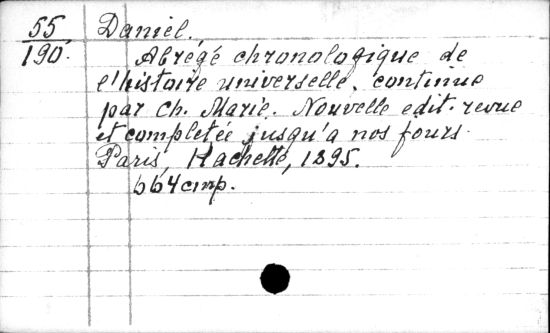 55 Daniel.
190. Abrégé chronologique de
l'histoire universelle, continue
par Ch. Marie. Nouvelle edit. revue
et completée jusqu'a nos jours.
Paris, Hachette, 1895.
664 стр.